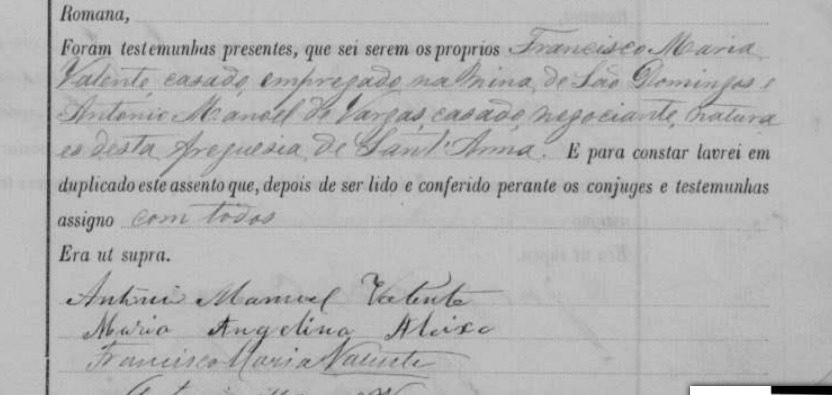 Romana,
Foram testemunhas presentes, que sei serem os proprios Francisco Maria
Valente, casado, empregado na Mina de São Domingos e
Antonio Manoel de Vargas, casado, negociante, natura
es desta freguesia de Sant'Anna. E para constar lavrei em
duplicado este assento que, depois de ser lido e conferido perante os conjuges e testemunhas
assigno com todos
Era ut supra.
Antonio Manuel Valente
Maria Angelina Aleixo
Francisco Maria Valente